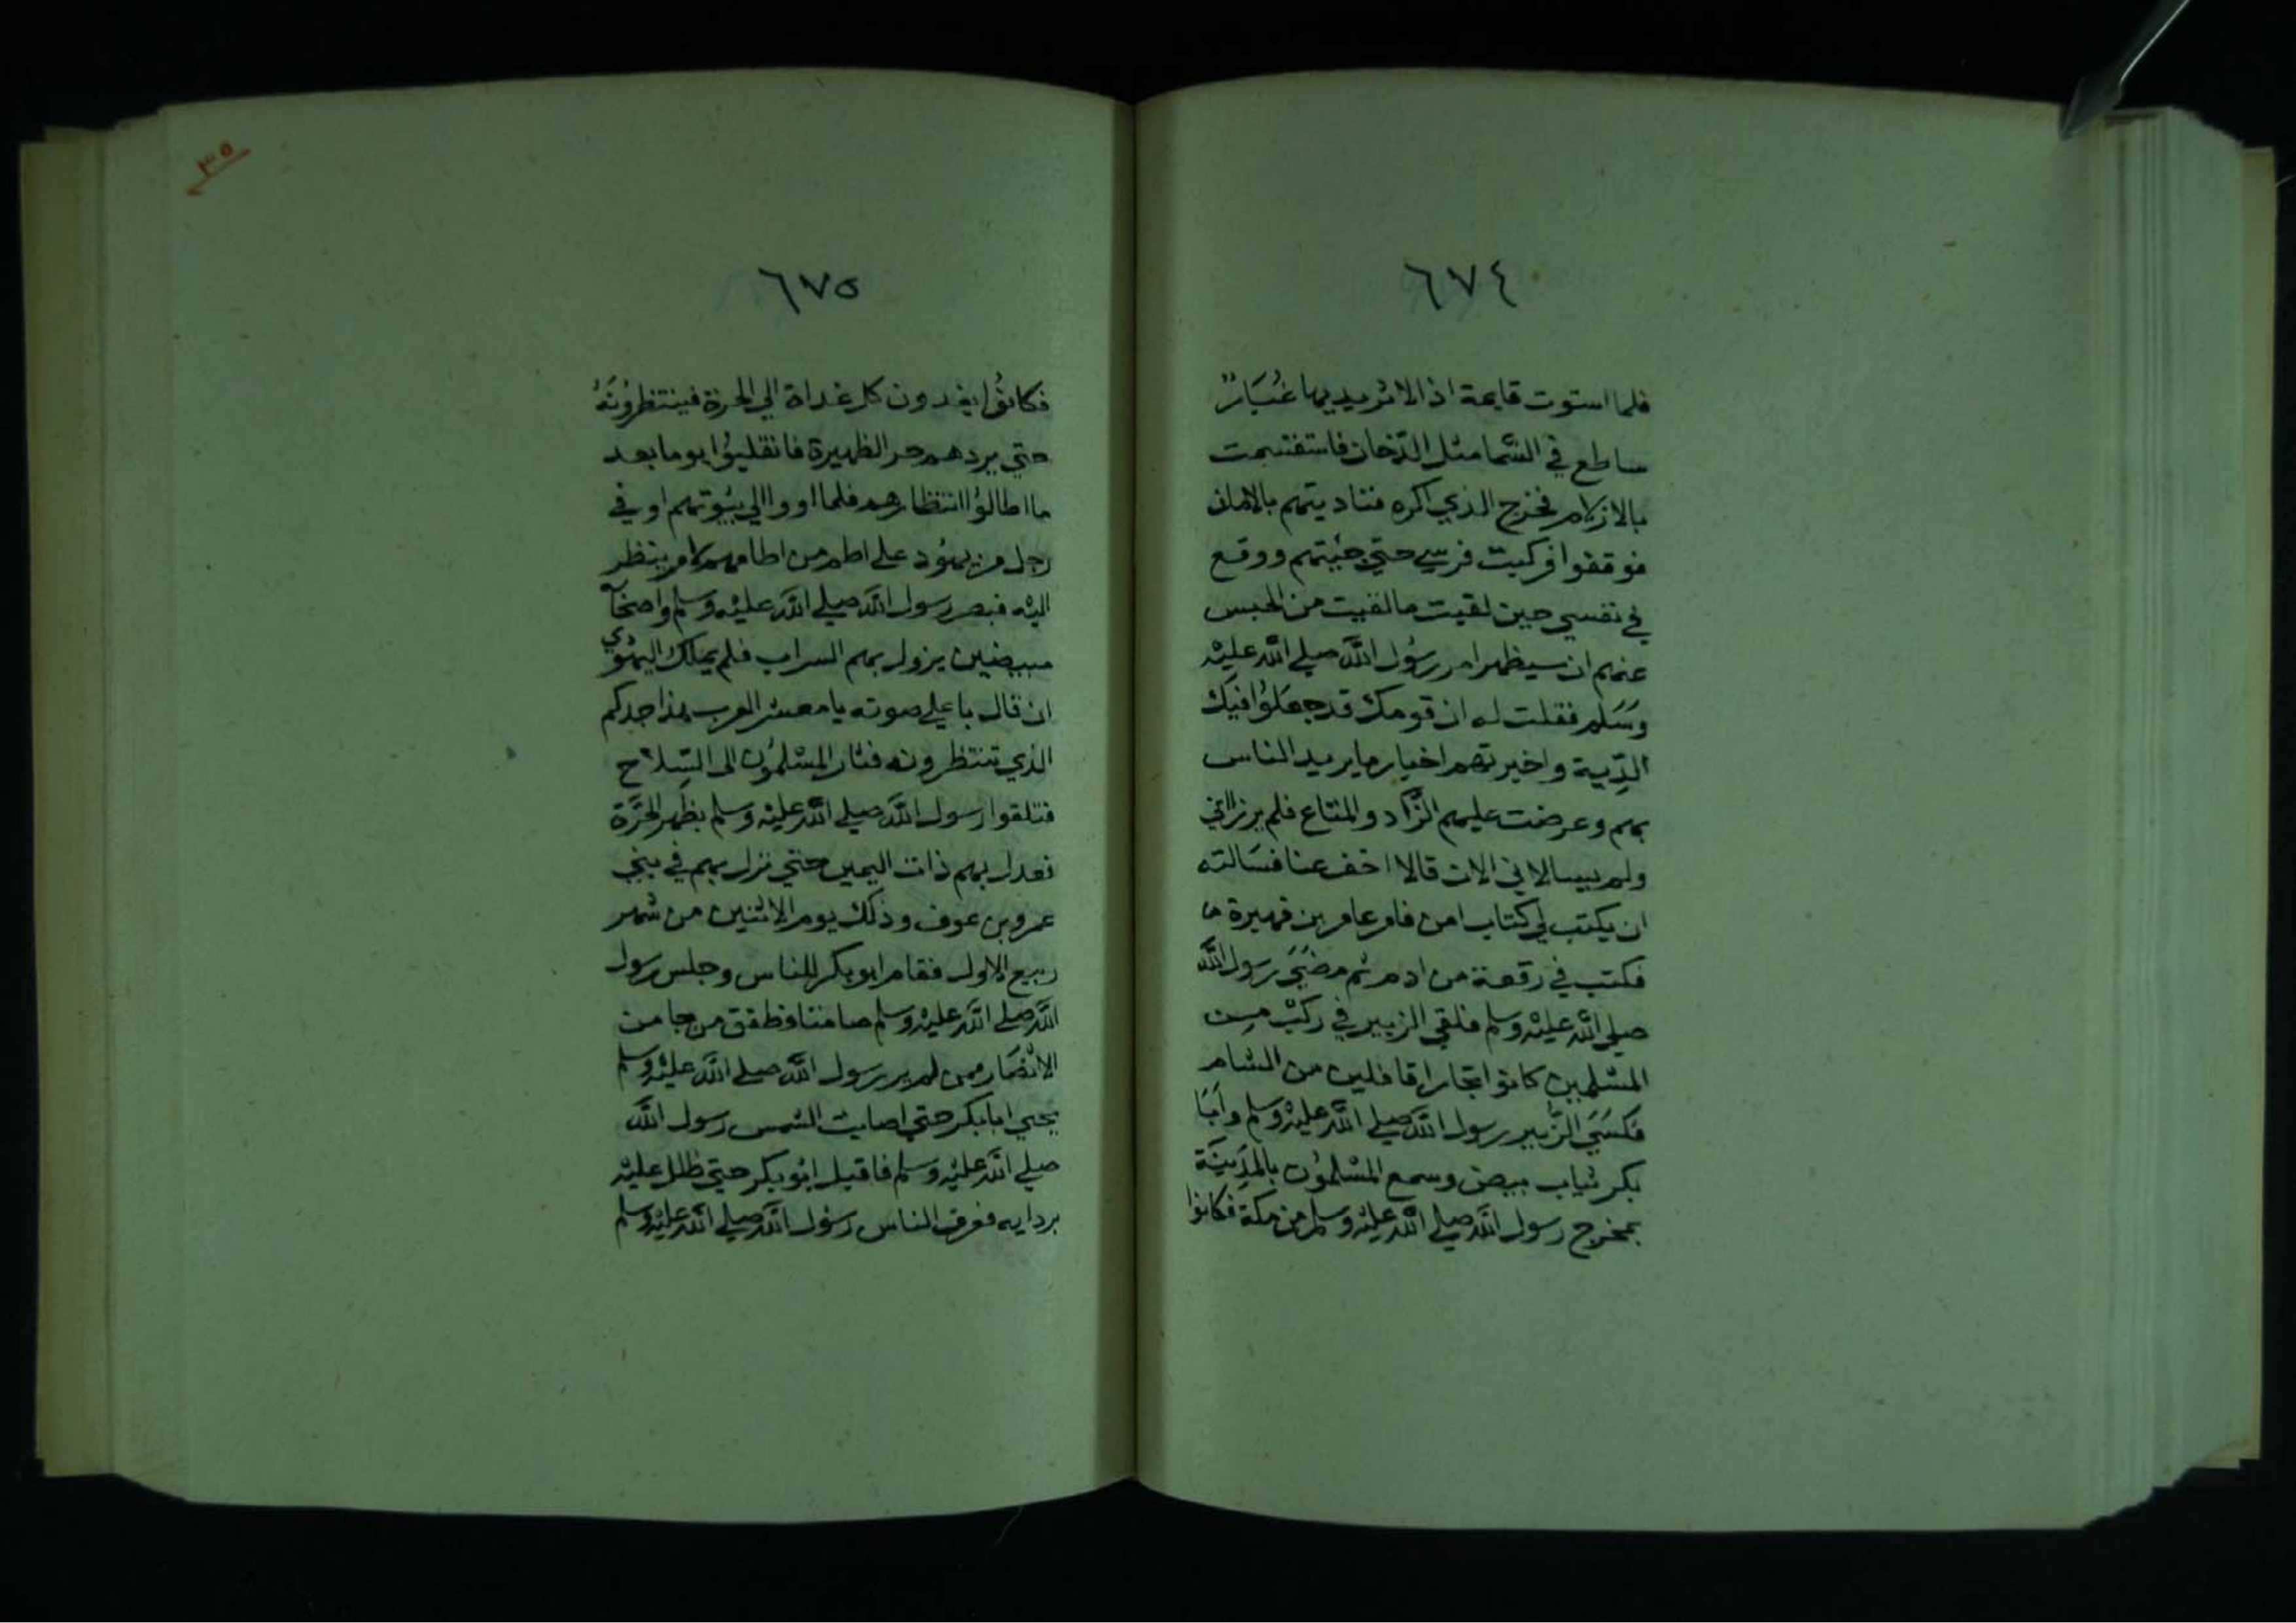 ٦٧٤
فلما استوت قايمة اذا لاثر يديها غُبَارٌ
ساطع في السَّما مثل الدّخان فاستقسمت
بالازلام فخرج الذي اكره فناديتهم بالامان
فوقفوا فركبت فرسي حتي جئتهم ووقع
في نفسي حين لقيت مالقيت من الحبس
عنهم ان سيظهر امر رسُول اللّه صلي اللّه عليْه
وسَلم فقلت له ان قومك قد جعلوُا فيكَ
الدِّية واخبرتهم اخبار ما يريد الناس
بهم وعرضت عليهم الزَّاد والمتاع فلم يرزااني
ولم يسالاني الا ان قالا اخف عنا فسَالته
ان يكتب لي كتاب امن فامر عامر بن فهيرة
فكتب في رقعة من ادم ثم مضَيَ رسول اللَّه
صلي اللّه عليْه وسلم فلقي الزبير في ركبْ مِن
المسْلمين كانوا تجارا قافلين من الشام
فكسَيَ الزُّبير رسول اللَّه صلي اللَّه عليْه وسلم وابَا
بكر ثياب بيض وسمع المسْلموُن بالمدِينَة
بمخرج رسول اللَّه صلي اللَّه عليْه وسلم من مكة فكانوُا
٣٥
٦٧٥
فكانوُا يغدون كل غداة الي الحرة فينتظروُنَهُ
حتي يردهم حر الظهيرة فانقلبوُا يوما بعد
ما اطالوُا انتظارهم فلما اووا الي بيُوتهم اوفي
رجل من يهوُد علي اطم من اطامهم لامر ينظر
اليْه فبصر رسول اللَّه صلي اللَّه عليْه وسلم واصحاَ
مبيضين يزول بهم السراب فلم يملك اليهوُدي
ان قال باعلي صوته يا معشر العرب هذا جدكم
الذي تنتظرونه فثار المسْلموُن الى السِّلاَح
فتلقوا رسول اللَّه صلي اللَّه عليْه وسلم بظهر الحَرَّة
فعدل بهم ذات اليمين حتي نزل بهم في بني
عمرو بن عوف وذلك يوم الاثنين من شهر
ربيع الاول فقام ابو بكر للناس وجلس رسول
اللَّه صلي اللَّه عليْه وسلم صامتا فطفق من جا من
الانْصَار ممن لم ير رسول اللَّه صلي اللَّه عليْه وسلم
يحيي ابا بكر حتي اصابت الشمس رسول اللَّه
صلي اللَّه عليْه وسلم فاقبل ابوُ بكر حتي ظلل عليْه
بردايه فعرف الناس رسُول اللَّه صلي اللَّه عليْه وسلم